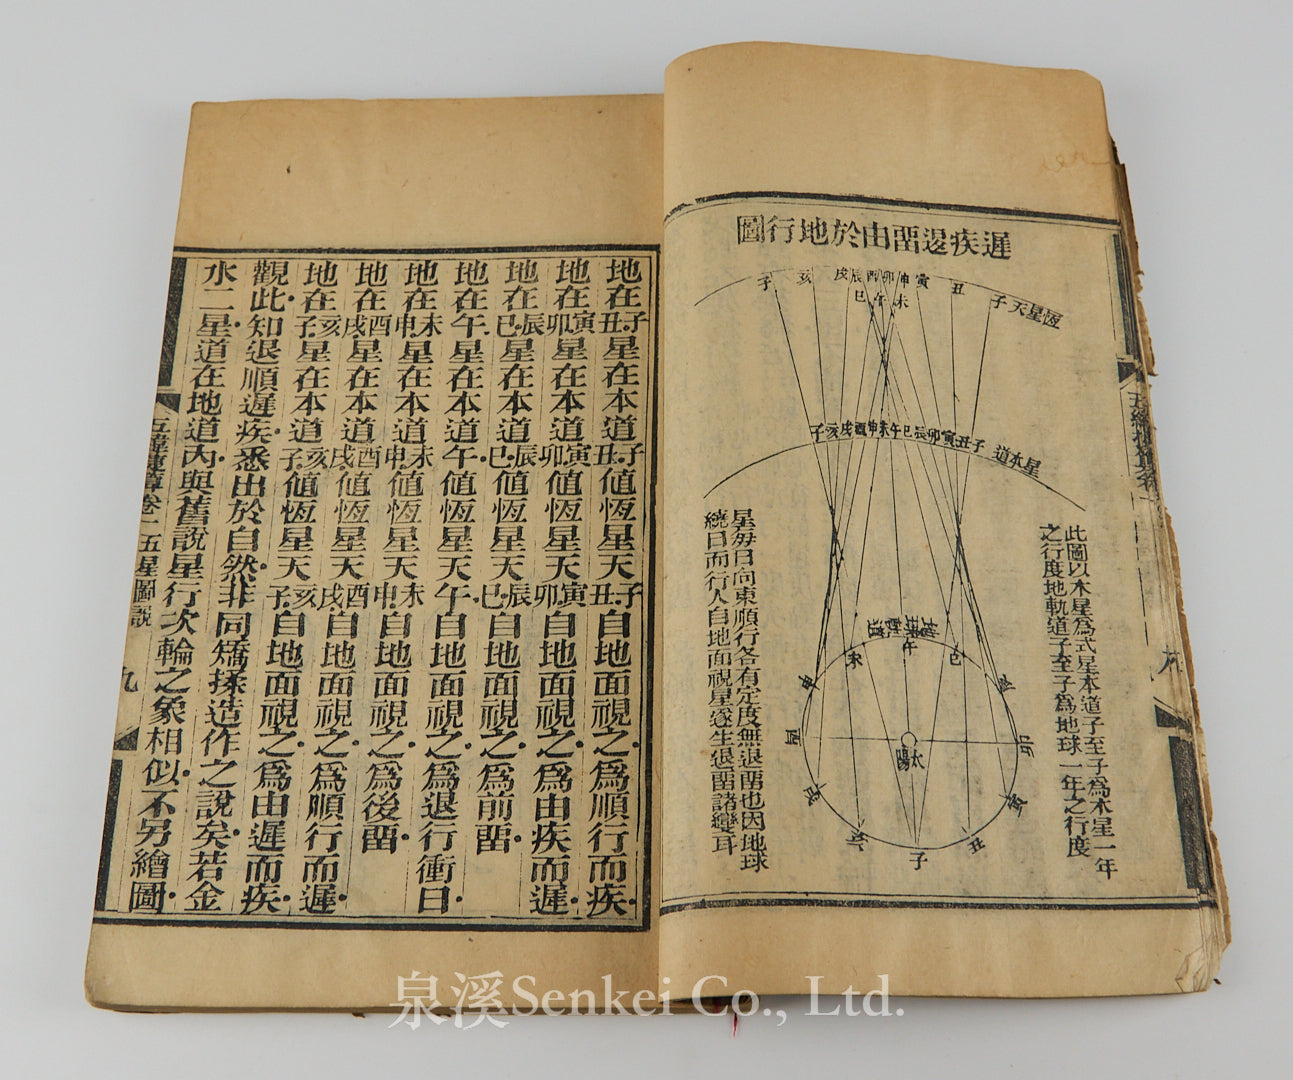 遲疾退畱由於地行圖
恆星天
子 丑 寅 申 卯 酉 辰 戌 亥 子
未 午 巳
星木道
子 丑 寅 卯 辰 巳 午 未 申 酉 戌 亥 子
此圖以木星爲式星本道子至子爲木星一年
之行度地軌道子至子爲地球一年之行度
星每日向東順行各有定度無退畱也因地球
繞日而行人自地面視星遂生退畱諸變耳
地球軌道
午
未
巳
申
辰
酉
卯
戌
寅
亥
丑
子
太陽
地在子丑星在本道子丑値恆星天子丑自地面視之爲順行而疾
地在寅卯星在本道寅卯値恆星天寅卯自地面視之爲由疾而遲
地在辰巳星在本道辰巳値恆星天辰巳自地面視之爲前畱
地在午星在本道午値恆星天午自地面視之爲退行衝日
地在未申星在本道未申値恆星天未申自地面視之爲後畱
地在酉戌星在本道酉戌値恆星天酉戌自地面視之爲順行而遲
地在亥子星在本道亥子値恆星天亥子自地面視之爲由遲而疾
觀此知退順遲疾悉出於自然非同矯揉造作之說矣若金
水二星道在地道內與舊說星行次輪之象相似不另繪圖
卷一 五星圖說
九
泉溪Senkei Co., Ltd.